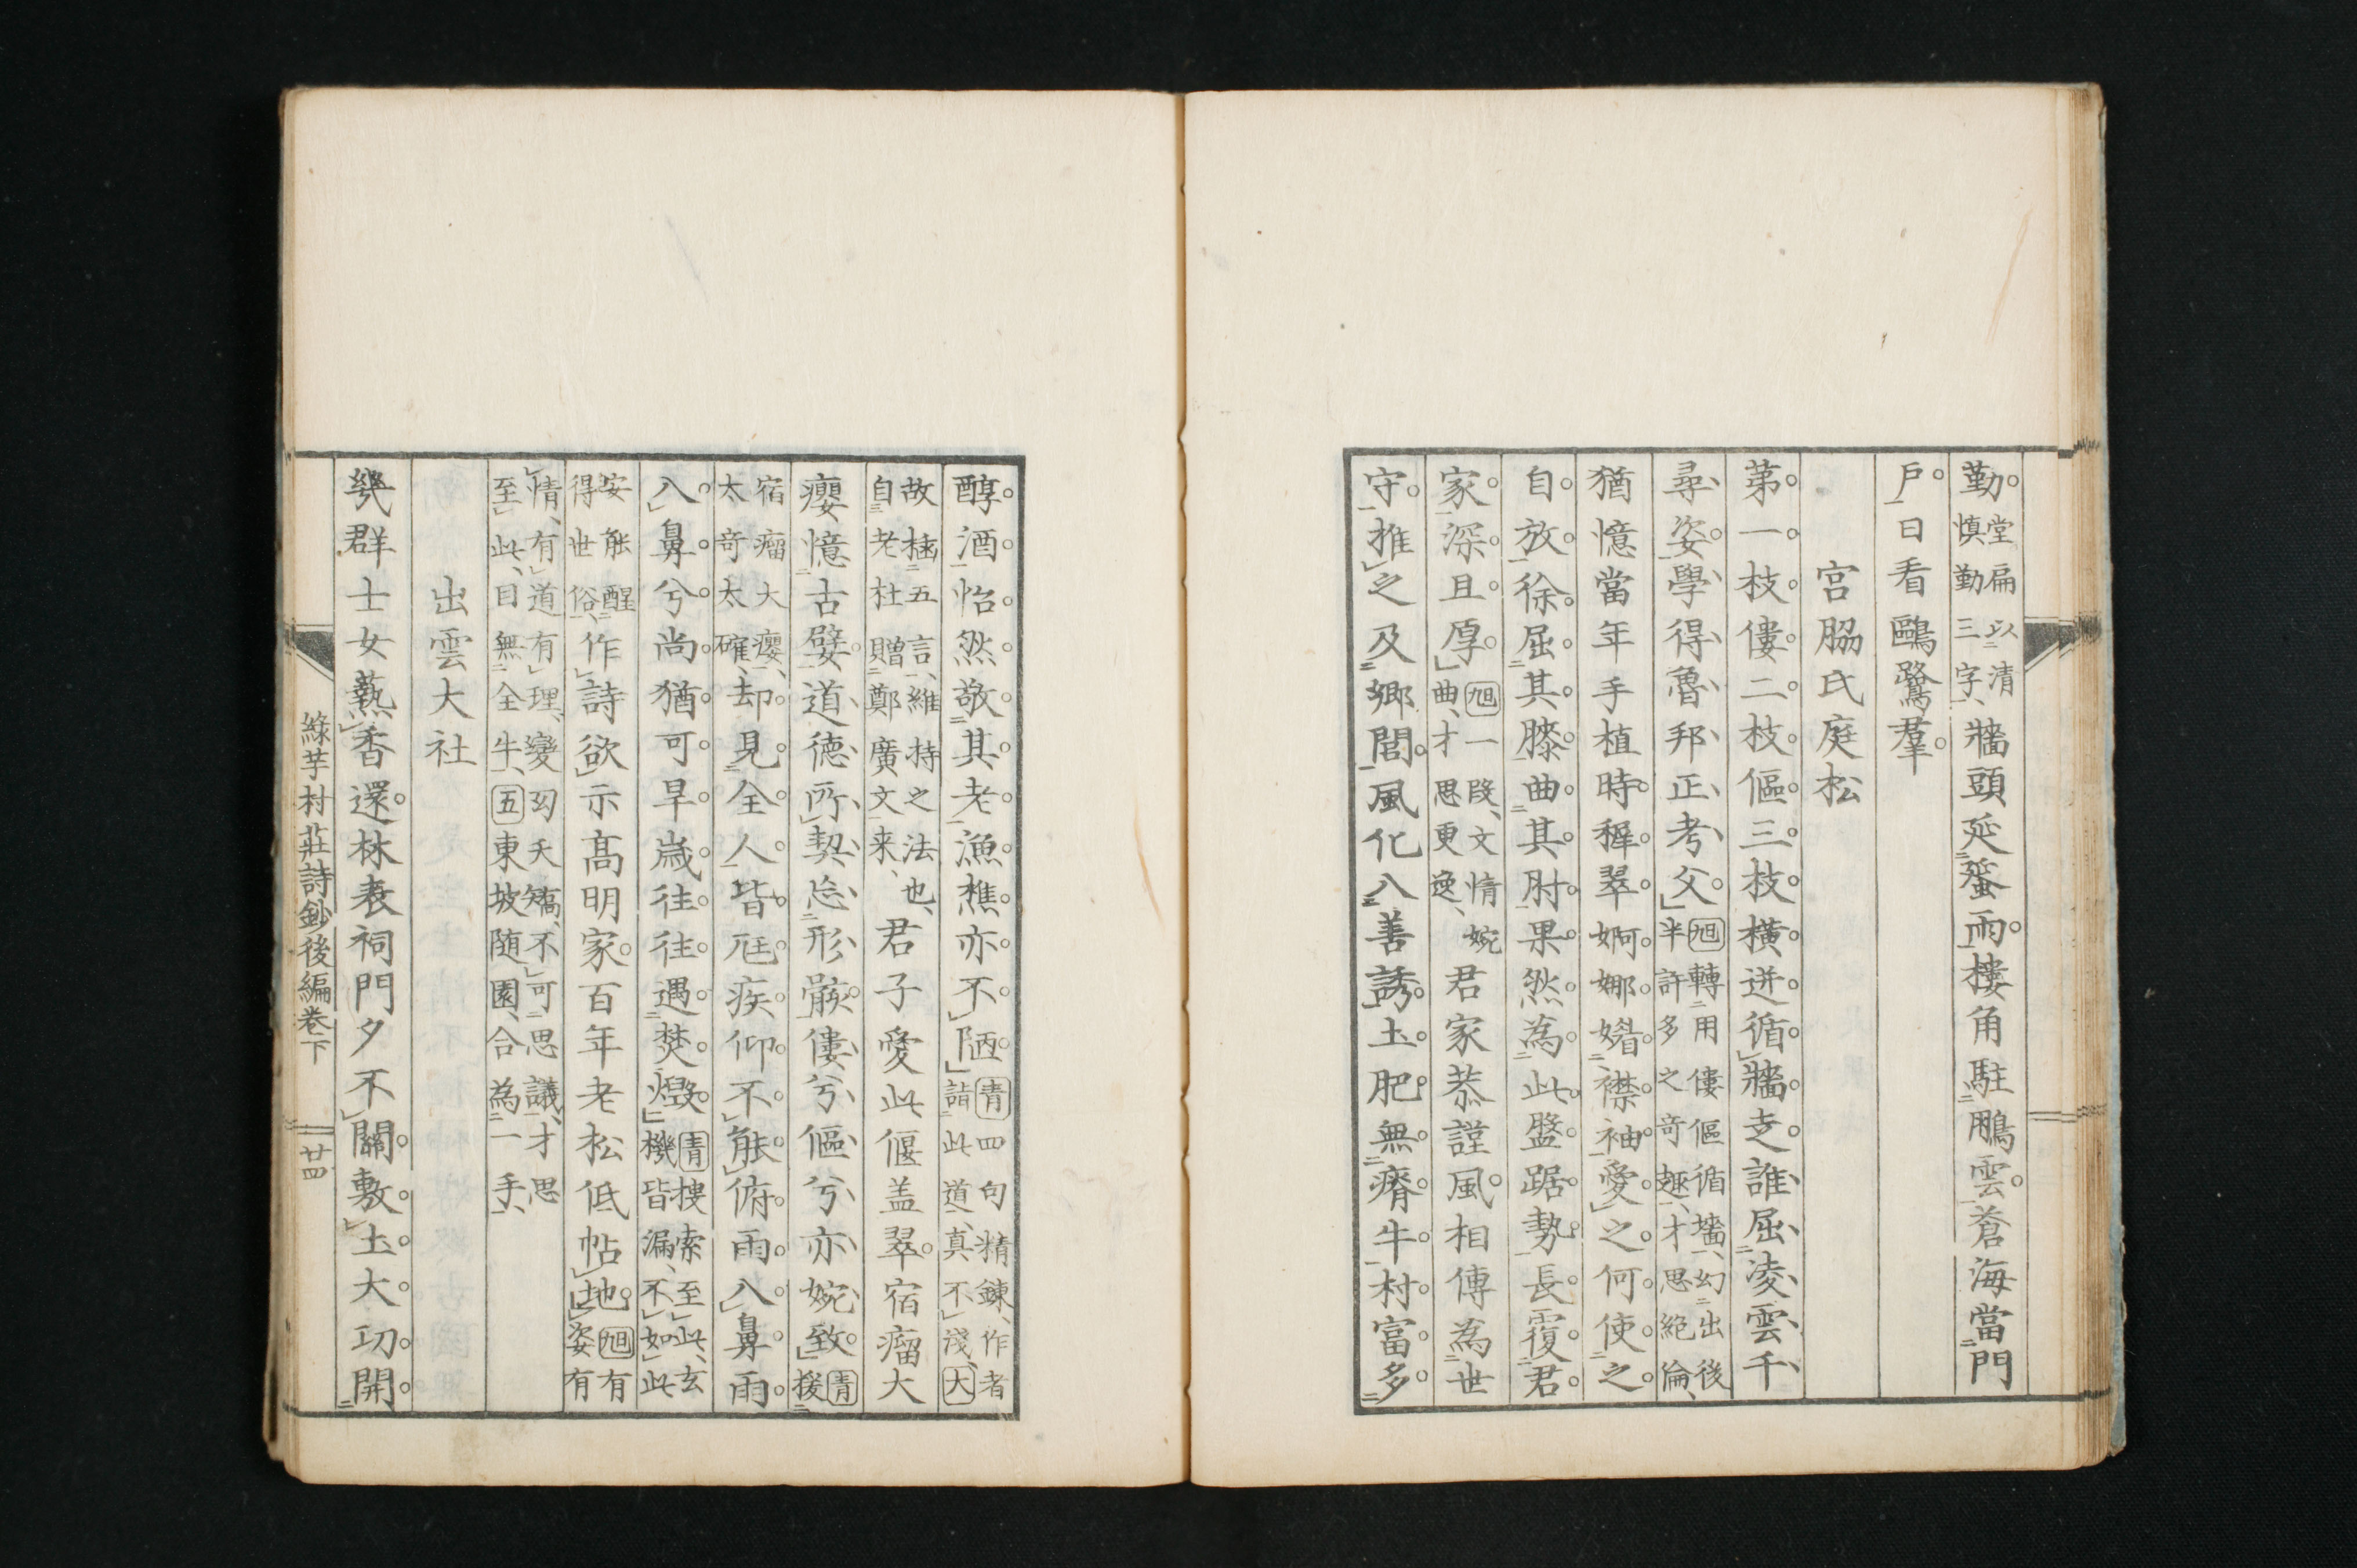 勤堂扁以清慎勤三字牆頭延蜑雨樓角駐鵬雲蒼海當門
戶日看鷗鷺羣
宮脇氏庭松
第一枝僂二枝傴三枝橫迸循牆走誰屈凌雲千
尋姿學得魯邦正考父旭轉用僂傴循墻幻出後半許多之奇趣才思絶倫
猶憶當年手植時穉翠婀娜嬌襟袖愛之何使之
自放徐屈其膝曲其肘果然為此盤踞勢長覆君
家深且厚旭一段文情婉曲才思更逸君家恭謹風相傳為世
守推之及鄉閭風化八善誘土肥無瘠牛村富多
醇酒怡然敬其老漁樵亦不陋青四句精鍊作者詣此道真不淺大
故極五言維持之法也自老杜贈鄭廣文来君子愛此偃盖翠宿瘤大
癭憶古嬖道德所契忘形骸僂兮傴兮亦婉致青援
宿瘤大癭太奇太確却見全人皆尫疾仰不能俯雨入鼻雨
入鼻兮尚猶可旱歳往往遇焚燬青搜索至此玄機皆漏不如此
安能醒得世俗作詩欲示高明家百年老松低帖地旭有姿有
情有道有理變幻夭矯不可思議才思至此目無全牛五東坡随園合為一手
出雲大社
幾群士女爇香還林表祠門夕不關敷土大功開
綠芋村莊詩鈔後編卷下
廿四